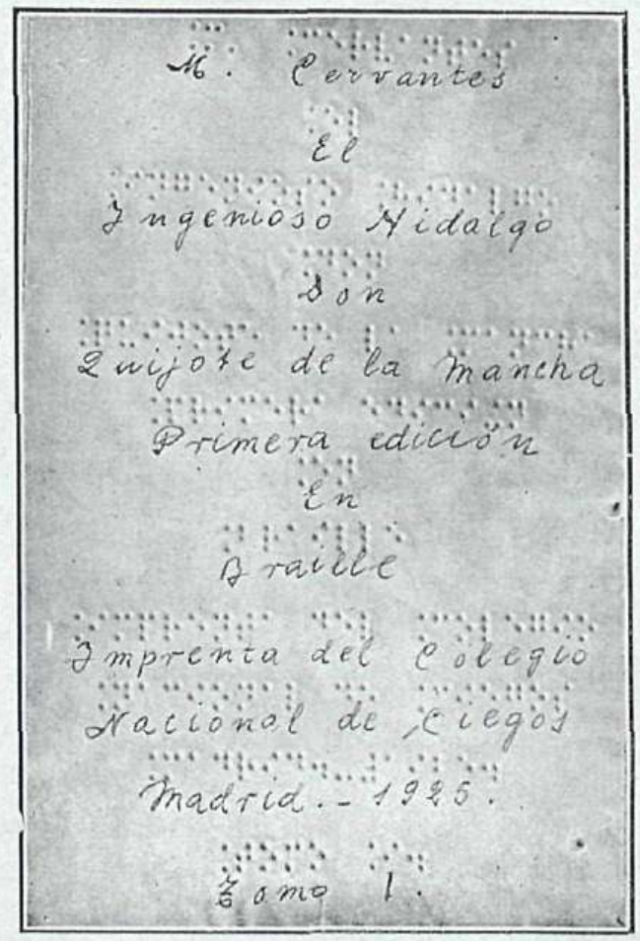 M. Cervantes
El
Ingenioso Hidalgo
Don
Quijote de la Mancha
Primera edición
En
Braille
Imprenta del Colegio
Nacional de Ciegos
Madrid.- 1925.
Tomo 1.